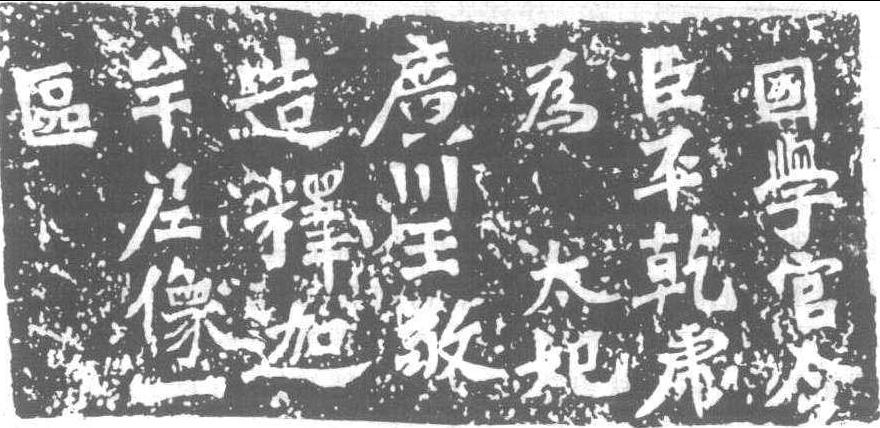 國學官令
臣平乾虎
為太妃
廣川王敬
造釋迦
牟尼像一
區